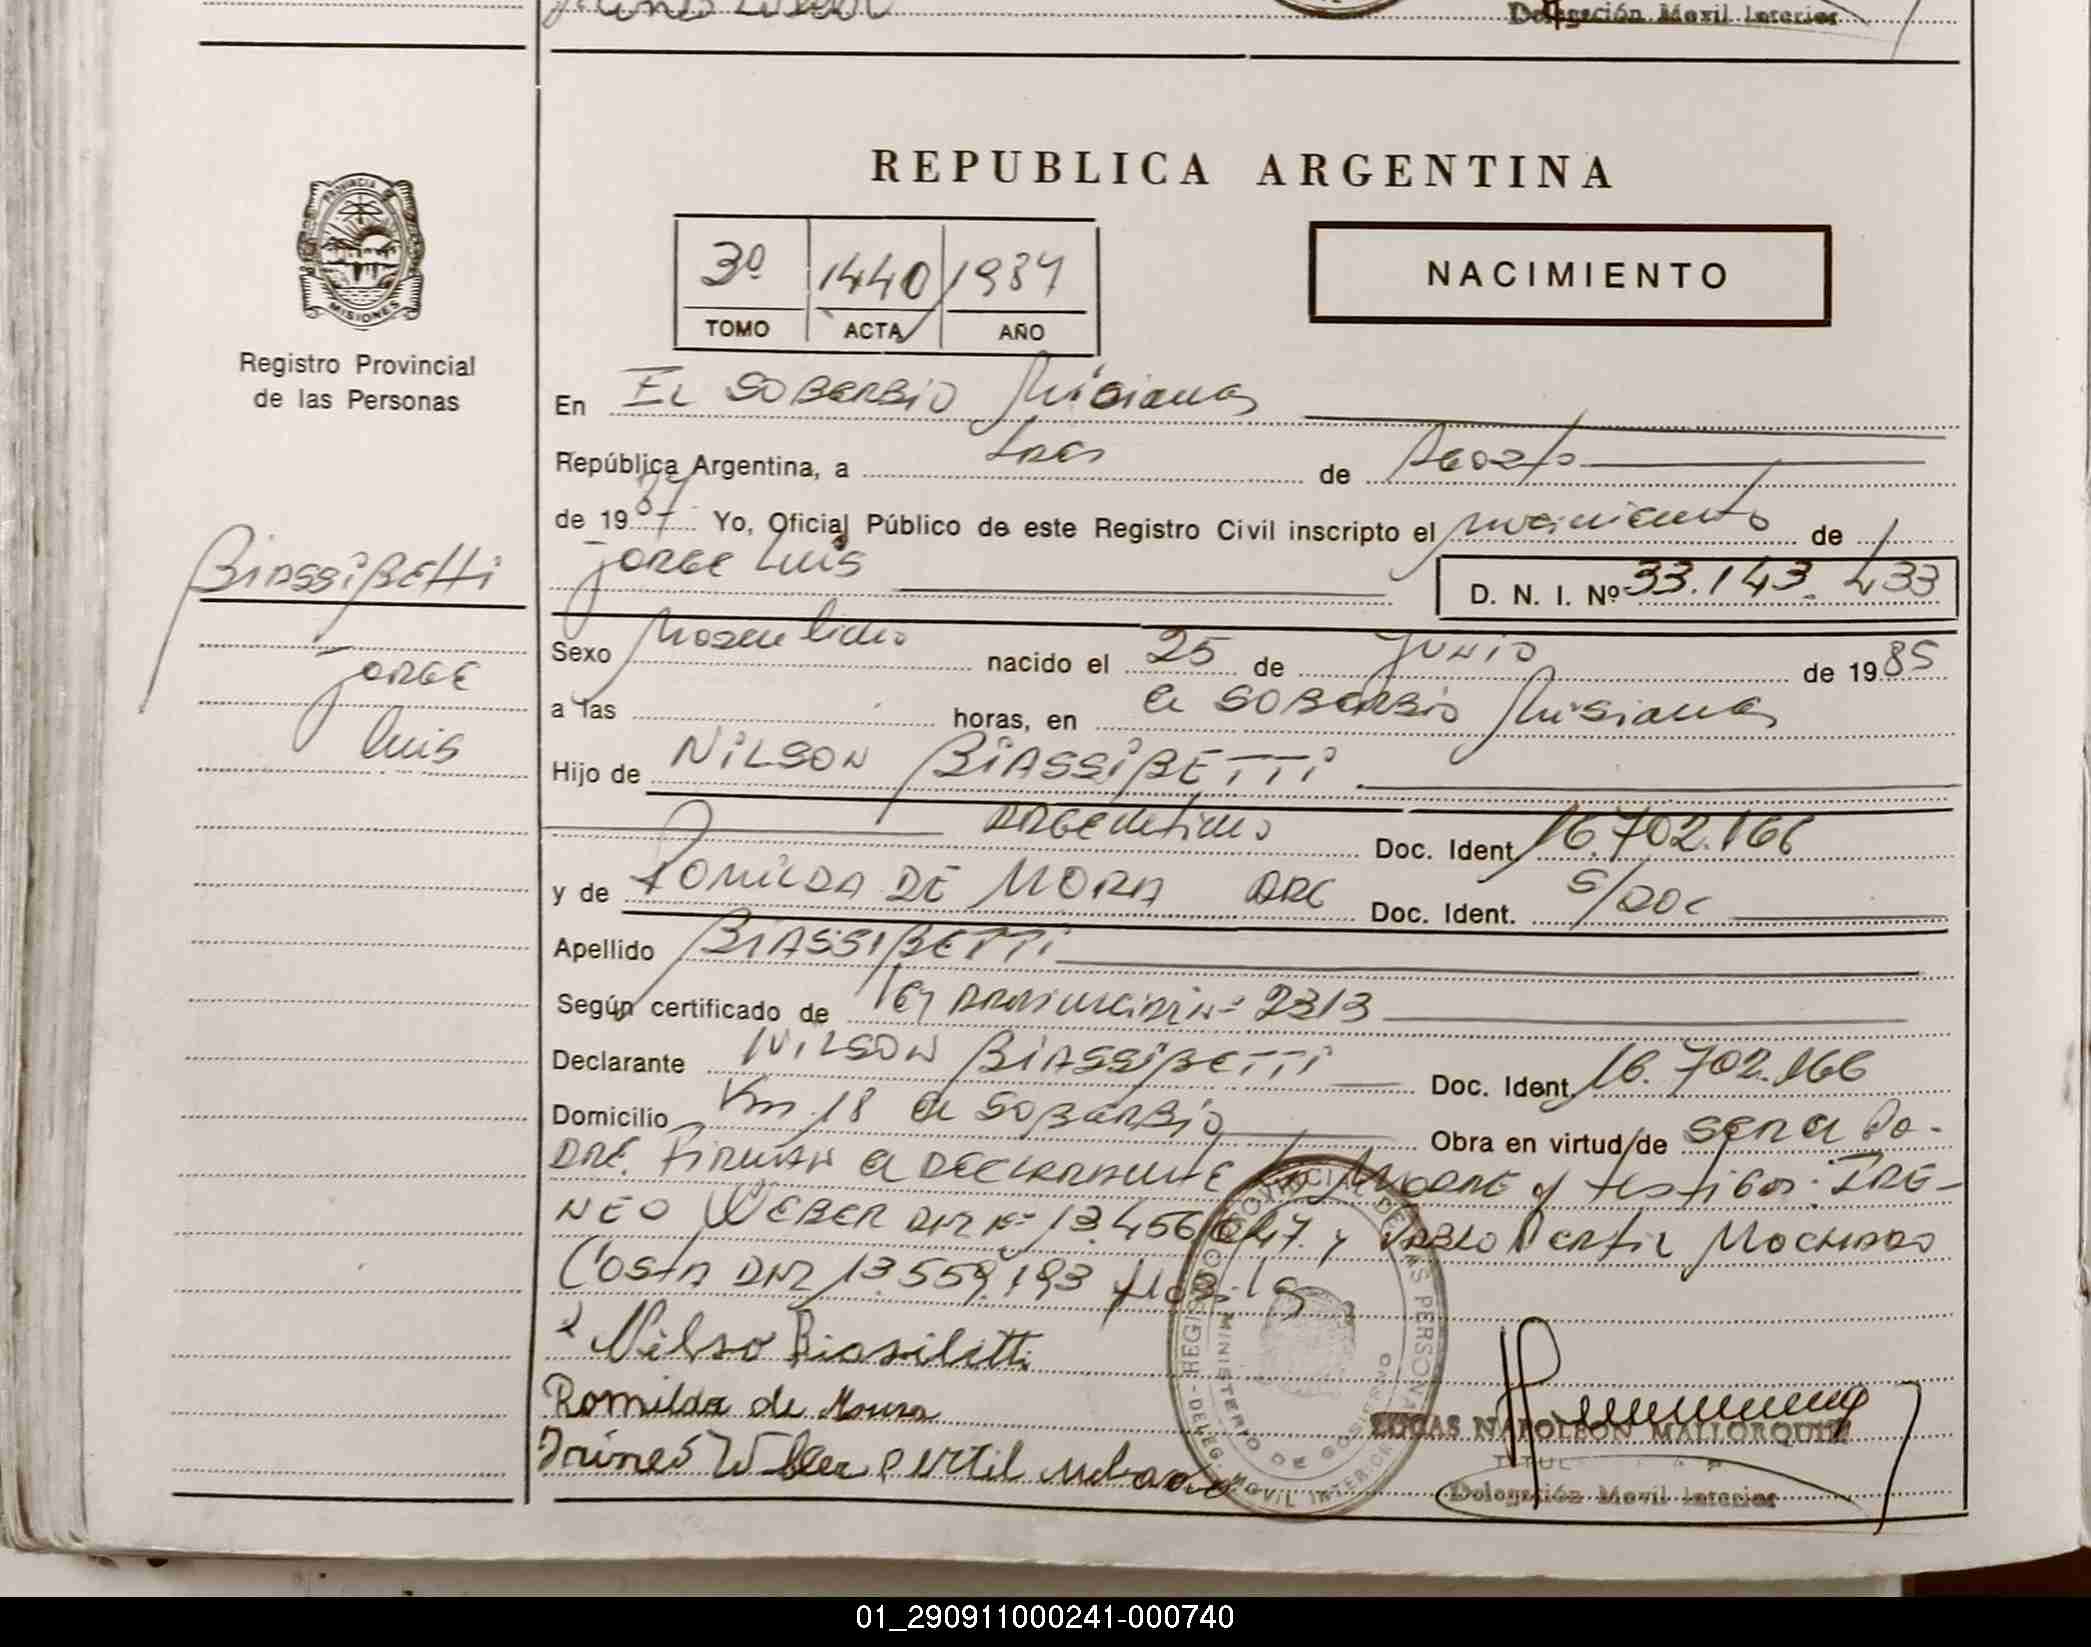 Delegación Movil Interior
REPUBLICA ARGENTINA
PROVINCIA DE
MISIONES
Registro Provincial
de las Personas
3º 1440 1987
TOMO ACTA AÑO
NACIMIENTO
En El Soberbio Misiones
República Argentina, a tres de Agosto
de 1987 Yo, Oficial Público de este Registro Civil inscripto el nacimiento de
Jorge Luis
D. N. I. Nº 33.143.433
Biassibetti
Jorge
Luis
Sexo Masculino nacido el 25 de Junio de 1985
a las horas, en El Soberbio Misiones
Hijo de Nilson Biassibetti
Argentino Doc. Ident. 16.702.166
y de Romilda De Mora Arg Doc. Ident. S/Doc
Apellido Biassibetti
Según certificado de Ley Provincial Nº 2313
Declarante Nilson Biassibetti Doc. Ident. 16.702.166
Domicilio Km 18 El Soberbio Obra en virtud de ser el Pa-
dre. Firman el declarante la Madre y testigos: Ire-
neo Weber DNI Nº 13.456.047 y Pablo Pertil Machado
Costa DNI 13.559.193
Nilso Biasibetti
Romilda de Moura
Irineo Weber Pertil Machado
REGISTRO PROVINCIAL DE LAS PERSONAS - DELEG. MOVIL INTERIOR
MINISTERIO DE GOBIERNO
LUCAS NAPOLEON MALLORQUIN
Delegación Movil Interior
01_290911000241-000740